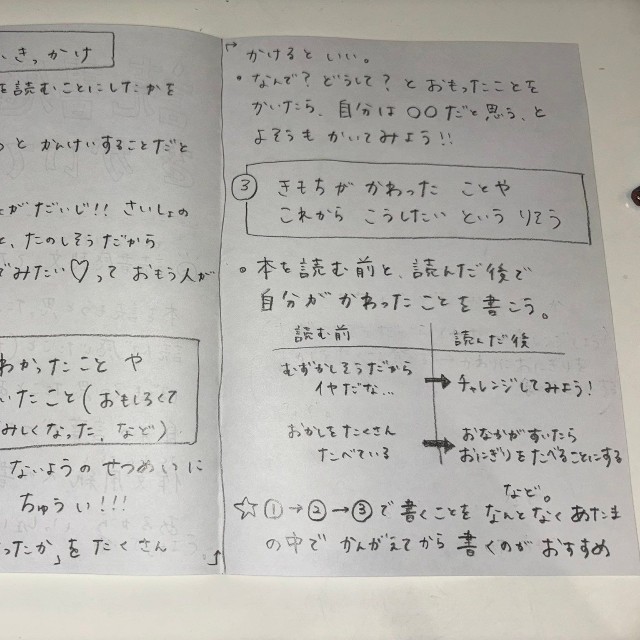 いきっかけ
を読むことにしたかを
っと かんけいすることだと
がだいじ!! さいしょの
と、たのしそうだから
でみたい♡って おもう人が
わかったこと や
いたこと(おもしろくて
みしくなった、など)
ないようの せつめいに
ちゅうい!!!
ったか」を たくさん
かけると いい。
・なんで? どうして? と おもったことを
かいたら、自分は ○○だと思う、と
よそうも かいてみよう!!
③ きもちが かわった ことや
これから こうしたい という りそう
・本を読む前と、読んだ後で
自分が かわったことを書こう。
読む前 読んだ後
むずかしそうだから
イヤだな… → チャレンジしてみよう!
おかしをたくさん
たべている → おなかがすいたら
おにぎりをたべることにする
など。
☆①→②→③で 書くことを なんとなく あたま
の中で かんがえてから 書くのが おすすめ